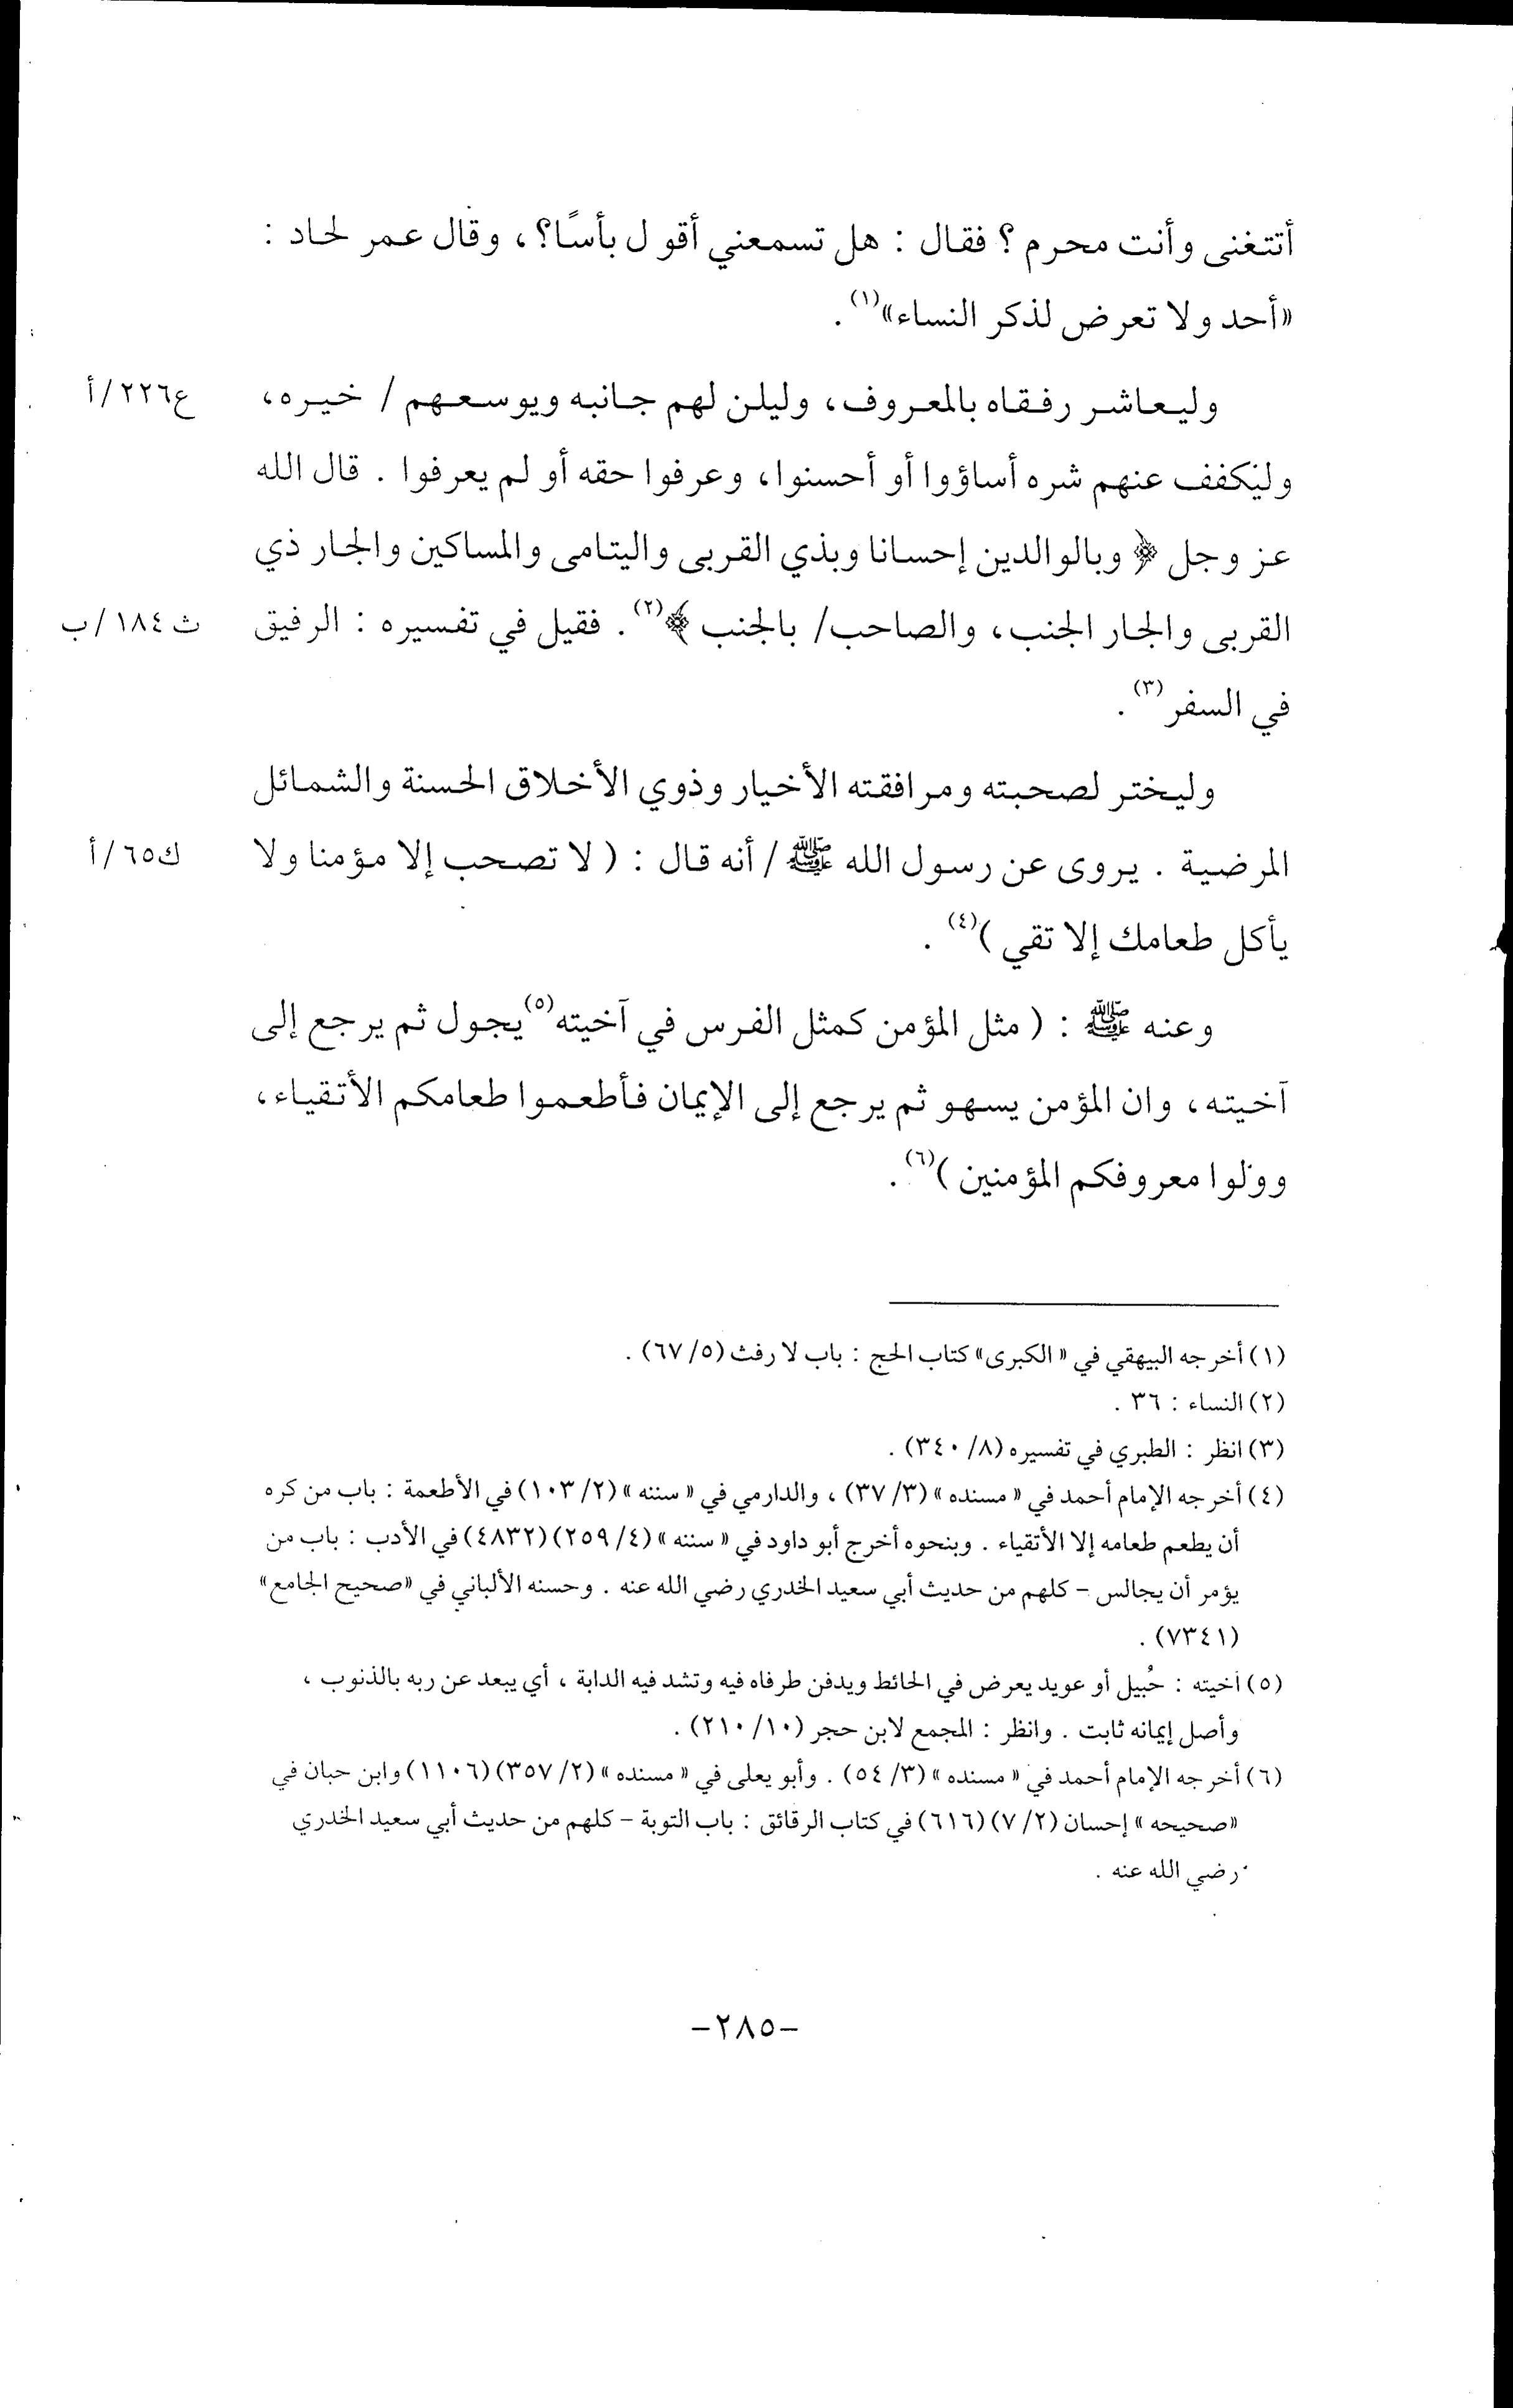 أتتغنى وأنت محرم ؟ فقال : هل تسمعني أقول بأسًا؟ ، وقال عمر لحاد :
«أحد ولا تعرض لذكر النساء»(١) .
وليعاشر رفقاه بالمعروف، وليلن لهم جانبه ويوسعهم / خيره، ع٢٢٦/أ
وليكفف عنهم شره أساؤوا أو أحسنوا، وعرفوا حقه أو لم يعرفوا . قال الله
عز وجل ﴿ وبالوالدين إحسانا وبذي القربى واليتامى والمساكين والجار ذي
القربى والجار الجنب، والصاحب/ بالجنب ﴾(٢) . فقيل في تفسيره : الرفيق ث١٨٤/ب
في السفر(٣) .
وليختر لصحبته ومرافقته الأخيار وذوي الأخلاق الحسنة والشمائل
المرضية . يروى عن رسول الله ﷺ / أنه قال : ( لا تصحب إلا مؤمنا ولا ك٦٥/أ
يأكل طعامك إلا تقي )(٤) .
وعنه ﷺ : ( مثل المؤمن كمثل الفرس في آخيته(٥) يجول ثم يرجع إلى
آخيته، وان المؤمن يسهو ثم يرجع إلى الإيمان فأطعموا طعامكم الأتقياء،
وولوا معروفكم المؤمنين )(٦) .
(١) أخرجه البيهقي في « الكبرى» كتاب الحج : باب لا رفث (٥/ ٦٧) .
(٢) النساء : ٣٦ .
(٣) انظر : الطبري في تفسيره (٨/ ٣٤٠) .
(٤) أخرجه الإمام أحمد في « مسنده » (٣/ ٣٧) ، والدارمي في « سننه » (٢/ ١٠٣) في الأطعمة : باب من كره
أن يطعم طعامه إلا الأتقياء . وبنحوه أخرج أبو داود في « سننه » (٤/ ٢٥٩) (٤٨٣٢) في الأدب : باب من
يؤمر أن يجالس - كلهم من حديث أبي سعيد الخدري رضي الله عنه . وحسنه الألباني في «صحيح الجامع»
(٧٣٤١) .
(٥) آخيته : حُبيل أو عويد يعرض في الحائط ويدفن طرفاه فيه وتشد فيه الدابة ، أي يبعد عن ربه بالذنوب ،
وأصل إيمانه ثابت . وانظر : المجمع لابن حجر (١٠/ ٢١٠) .
(٦) أخرجه الإمام أحمد في « مسنده » (٣/ ٥٤) . وأبو يعلى في « مسنده » (٢/ ٣٥٧) (١١٠٦) وابن حبان في
«صحيحه » إحسان (٢/ ٧) (٦١٦) في كتاب الرقائق : باب التوبة - كلهم من حديث أبي سعيد الخدري
رضي الله عنه .
-٢٨٥-